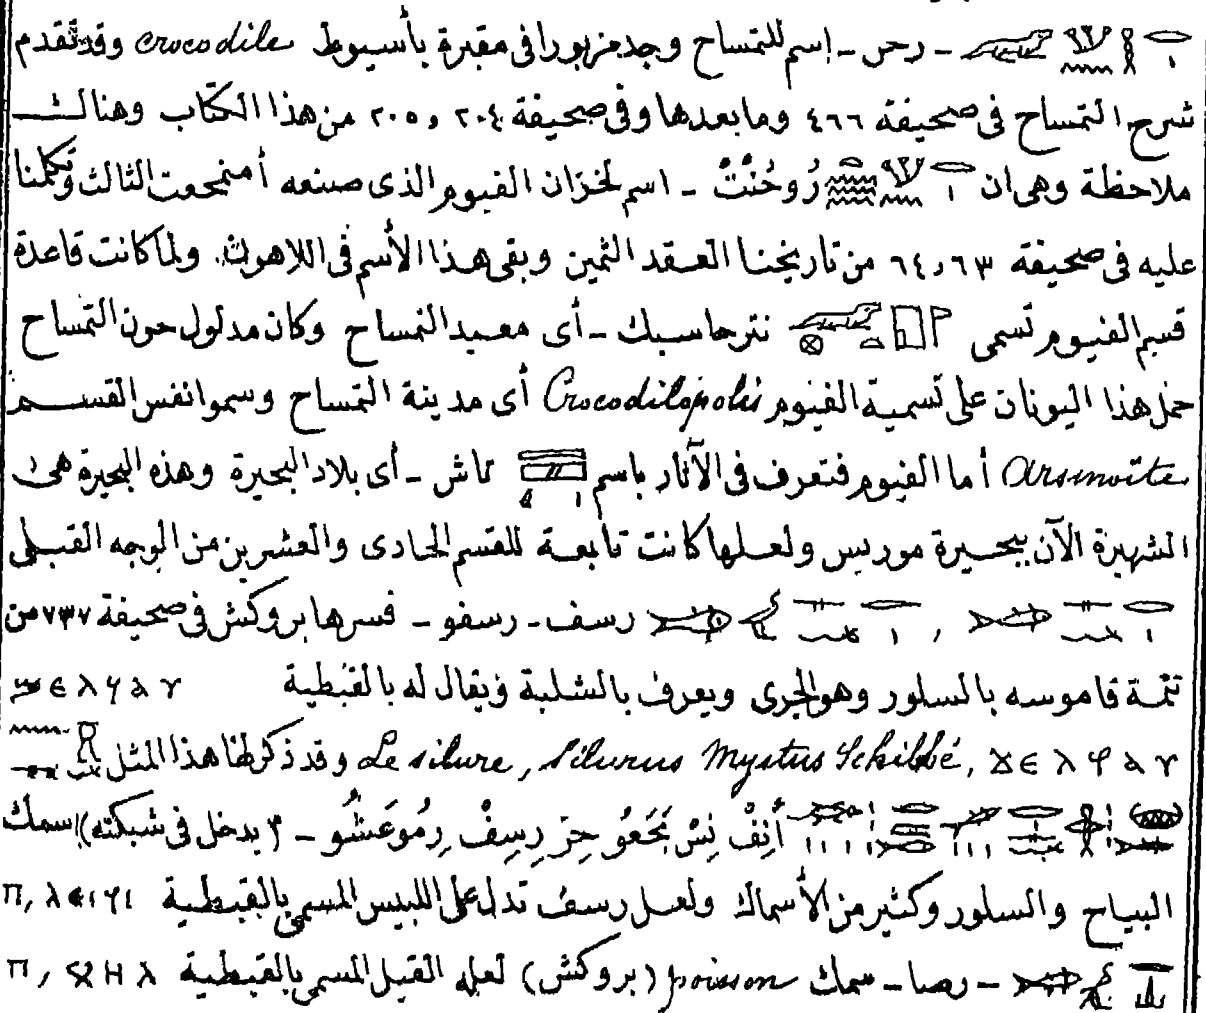 رحن - إسم للتمساح وجد مزبورا فى مقبرة بأسيوط crocodile وقد تقدم
شرح التمساح فى صحيفة ٤٦٦ وما بعدها وفى صحيفة ٢٠٤ و ٢٠٥ من هذا الكتاب وهنالك
ملاحظة وهى ان رُوحُنْتْ - اسم لخزان الفيوم الذى صنعه أمنمحعت الثالث وتكلمنا
عليه فى صحيفة ٦٣ و ٦٤ من تاريخنا العقد الثمين وبقى هذا الأسم فى اللاهون. ولما كانت قاعدة
قسم الفيوم تسمى نتر حا سبك - أى معبد التمساح وكان مدلول حون التمساح
حمل هذا اليونان على تسمية الفيوم Crocodilopolis أى مدينة التمساح وسموا نفس القسم
Arsinoïte أما الفيوم فتعرف فى الآثار باسم تاش - أى بلاد البحيرة وهذه البحيرة هى
الشهيرة الآن ببحيرة موريس ولعلها كانت تابعة للقسم الحادى والعشرين من الوجه القبلى
, رسف - رسفو - فسرها بروكش فى صحيفة ٧٣٧ من
تتمة قاموسه بالسلور وهو الجرى ويعرف بالشلبة ويقال له بالقبطية ϣⲉⲗϥⲁⲩ
ϫⲉⲗⲫⲁⲩ, Le silure, Silurus Mystus Schilbé وقد ذكر لها هذا المثل
أَنِفْ نِسْ بَحَعُو حِرْ رِسِفْ رِمُو عَشُو - (٣ يدخل فى شبكته) سمك
البياح والسلور وكثير من الأسماك ولعل رسف تدل على اللبيس المسمى بالقبطية ⲡⲓⲗⲉⲓϥⲓ
- رصا - سمك poisson (بروكش) لعله القيل المسمى بالقبطية